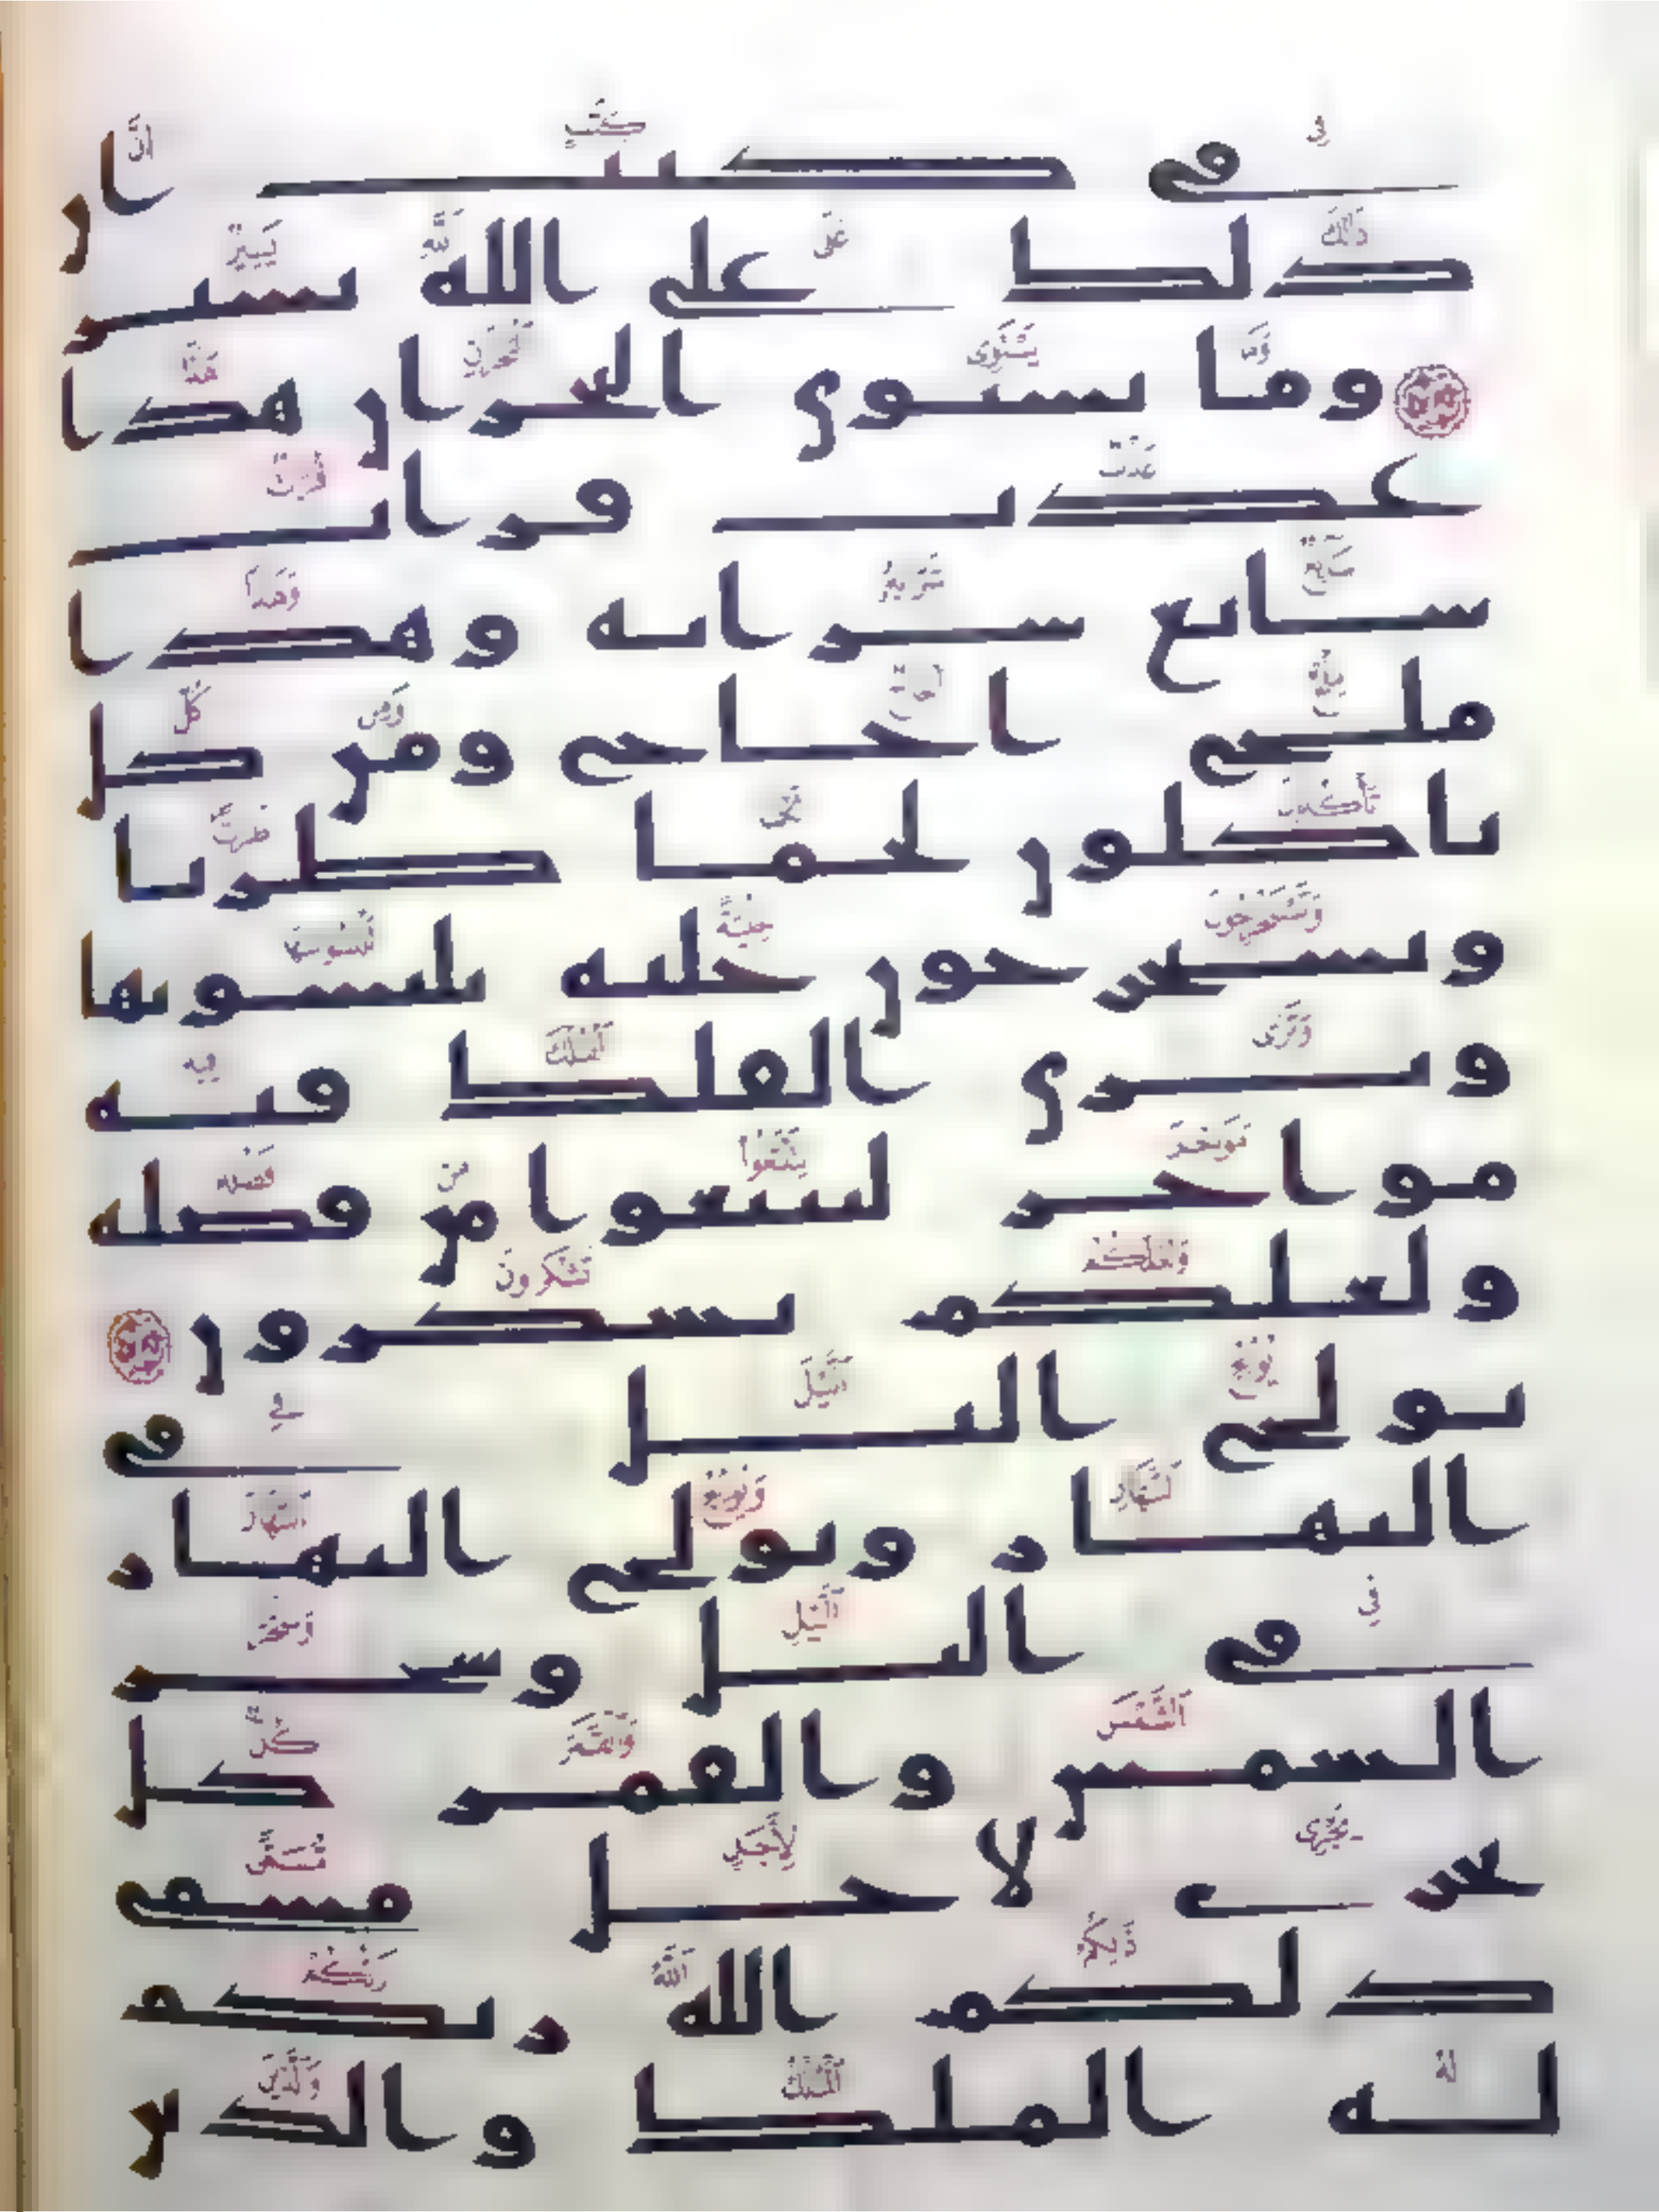 في كتب ان
ذلك على الله يسير
وما يستوي البحران هذا
عذب فرات
سايغ شرابه وهذا
ملح اجاج ومن كل
تاكلون لحما طريا
وتستخرجون حلية تلبسونها
وترى الفلك فيه
مواخر لتبتغوا من فضله
ولعلكم تشكرون
يولج اليل في
النهار ويولج النهار
في اليل وسخر
الشمس والقمر كل
يجري لاجل مسمى
ذلكم الله ربكم
له الملك والذين